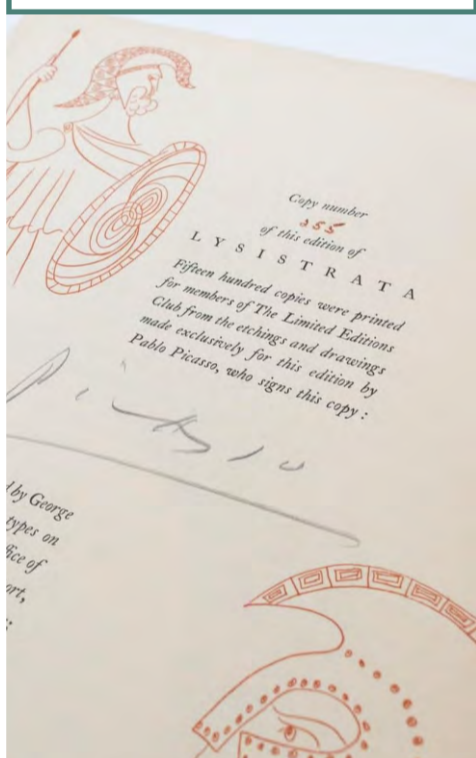 Copy number
255
of this edition of
LYSISTRATA
Fifteen hundred copies were printed
for members of The Limited Editions
Club from the etchings and drawings
made exclusively for this edition by
Pablo Picasso, who signs this copy :
Picasso
by George
types on
fice of
ort,
: